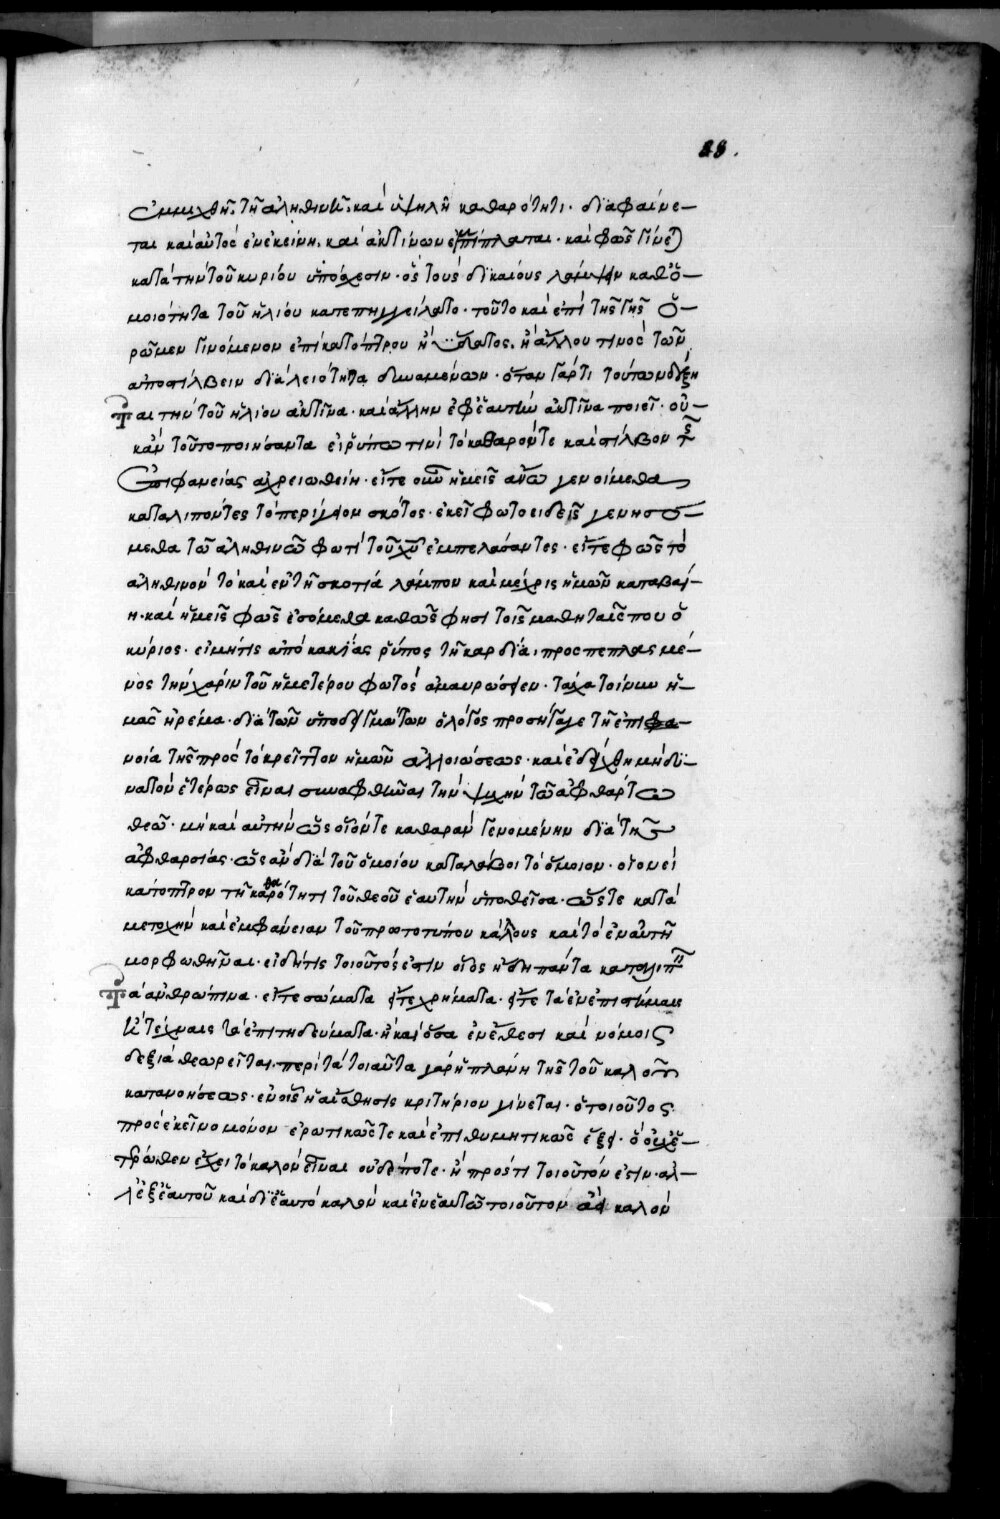 28.
ἐμμιχθῇ τῇ ἀληθινῇ. καὶ ὑψηλῇ καθαρότητι. διαφαίνε-
ται καὶ αὐτὸς ἐν ἐκείνῃ. καὶ ἀκτίνων ἐμπίπλαται. καὶ φῶς γίνεται
κατὰ τὴν τοῦ κυρίου ὑπόσχεσιν. ὃς τοὺς δικαίους λάμψειν καθ' ὁ-
μοιότητα τοῦ ἡλίου κατεπηγγείλατο. τοῦτο καὶ ἐπὶ τῆς γῆς ὁ-
ρῶμεν γινόμενον ἐπὶ κατόπτρου ἢ ὕδατος. ἢ ἄλλου τινὸς τῶν
ἀποστίλβειν διὰ λειότητα δυναμένων. ὅταν γάρ τι τούτων δέξη
ται τὴν τοῦ ἡλίου ἀκτῖνα. καὶ ἄλλην ἐφ' ἑαυτῶν ἀκτῖνα ποιεῖ. οὐ-
κ ἂν τοῦτο ποιήσαντα εἰ ῥύπῳ τινὶ τὸ καθαρόν τε καὶ στίλβον τῆς
ἐπιφανείας ἀχρειωθείη. εἴτε οὖν ἡμεῖς ἄνω γενοίμεθα
καταλιπόντες τὸ περίγειον σκότος. ἐκεῖ φωτοειδεῖς γενησό-
μεθα τῷ ἀληθινῷ φωτὶ τοῦ χυ ἐμπελάσαντες. εἴτε φῶς τὸ
ἀληθινὸν τὸ καὶ ἐν τῇ σκοτίᾳ λάμπον καὶ μέχρις ἡμῶν καταβαί-
η. καὶ ἡμεῖς φῶς ἐσόμεθα καθώς φησι τοῖς μαθηταῖς που ὁ
κύριος. εἰ μή τις ἀπὸ κακίας ῥύπος τῇ καρδίᾳ προσπεπλασμέ-
νος τὴν χάριν τοῦ ἡμετέρου φωτὸς ἀμαυρώσειεν. τάχα τοίνυν ἡ-
μᾶς ἠρέμα. διὰ τῶν ὑποδειγμάτων ὁ λόγος προσήγαγε τῇ ἐπι
νοίᾳ τῆς πρὸς τὸ κρεῖττον ἡμῶν ἀλλοιώσεως. καὶ ἐδείχθη μὴ δυ-
νατὸν ἑτέρως εἶναι συναφθῆναι τὴν ψυχὴν τῷ ἀφθάρτῳ
θεῷ. μὴ καὶ αὐτὴν ὡς οἷόν τε καθαρὰν γενομένην διὰ τῆς
ἀφθαρσίας. ὡς ἂν διὰ τοῦ ὁμοίου καταλάβοι τὸ ὅμοιον. οἱονεὶ
κάτοπτρον τῇ καθαρότητι τοῦ θεοῦ ἑαυτὴν ὑποθεῖσα. ὥστε κατὰ
μετοχὴν καὶ ἐμφάνειαν τοῦ πρωτοτύπου κάλλους καὶ τὸ ἐν αὐτῇ
μορφωθῆναι. εἰ δή τις τοιοῦτός ἐστιν οἷος ἤδη πάντα καταλιπεῖν
τὰ ἀνθρώπινα. εἴτε σώματα εἴτε χρήματα. εἴτε τὰ ἐν ἐπιστήμαις
καὶ τέχναις τὰ ἐπιτηδεύματα. ἢ καὶ ὅσα ἐν ἔθεσι καὶ νόμοις
δεξιὰ θεωρεῖται. περὶ τὰ τοιαῦτα γὰρ ἡ πλάνη τῆς τοῦ καλοῦ
κατανοήσεως. ἐν οἷς ἡ αἴσθησις κριτήριον γίνεται. ὁ τοιοῦτος
πρὸς ἐκεῖνο μόνον ἐρωτικῶς τε καὶ ἐπιθυμητικῶς ἕξει. ὃ οὐχ ἑ-
τέρωθεν ἔχει τὸ καλὸν εἶναι οὐδέποτε. ἢ πρός τι τοιοῦτόν ἐστιν. ἀλ-
λ' ἐξ ἑαυτοῦ καὶ δι' ἑαυτὸ καλὸν καὶ ἐν ἑαυτῷ τοιοῦτον ἀεὶ καλὸν